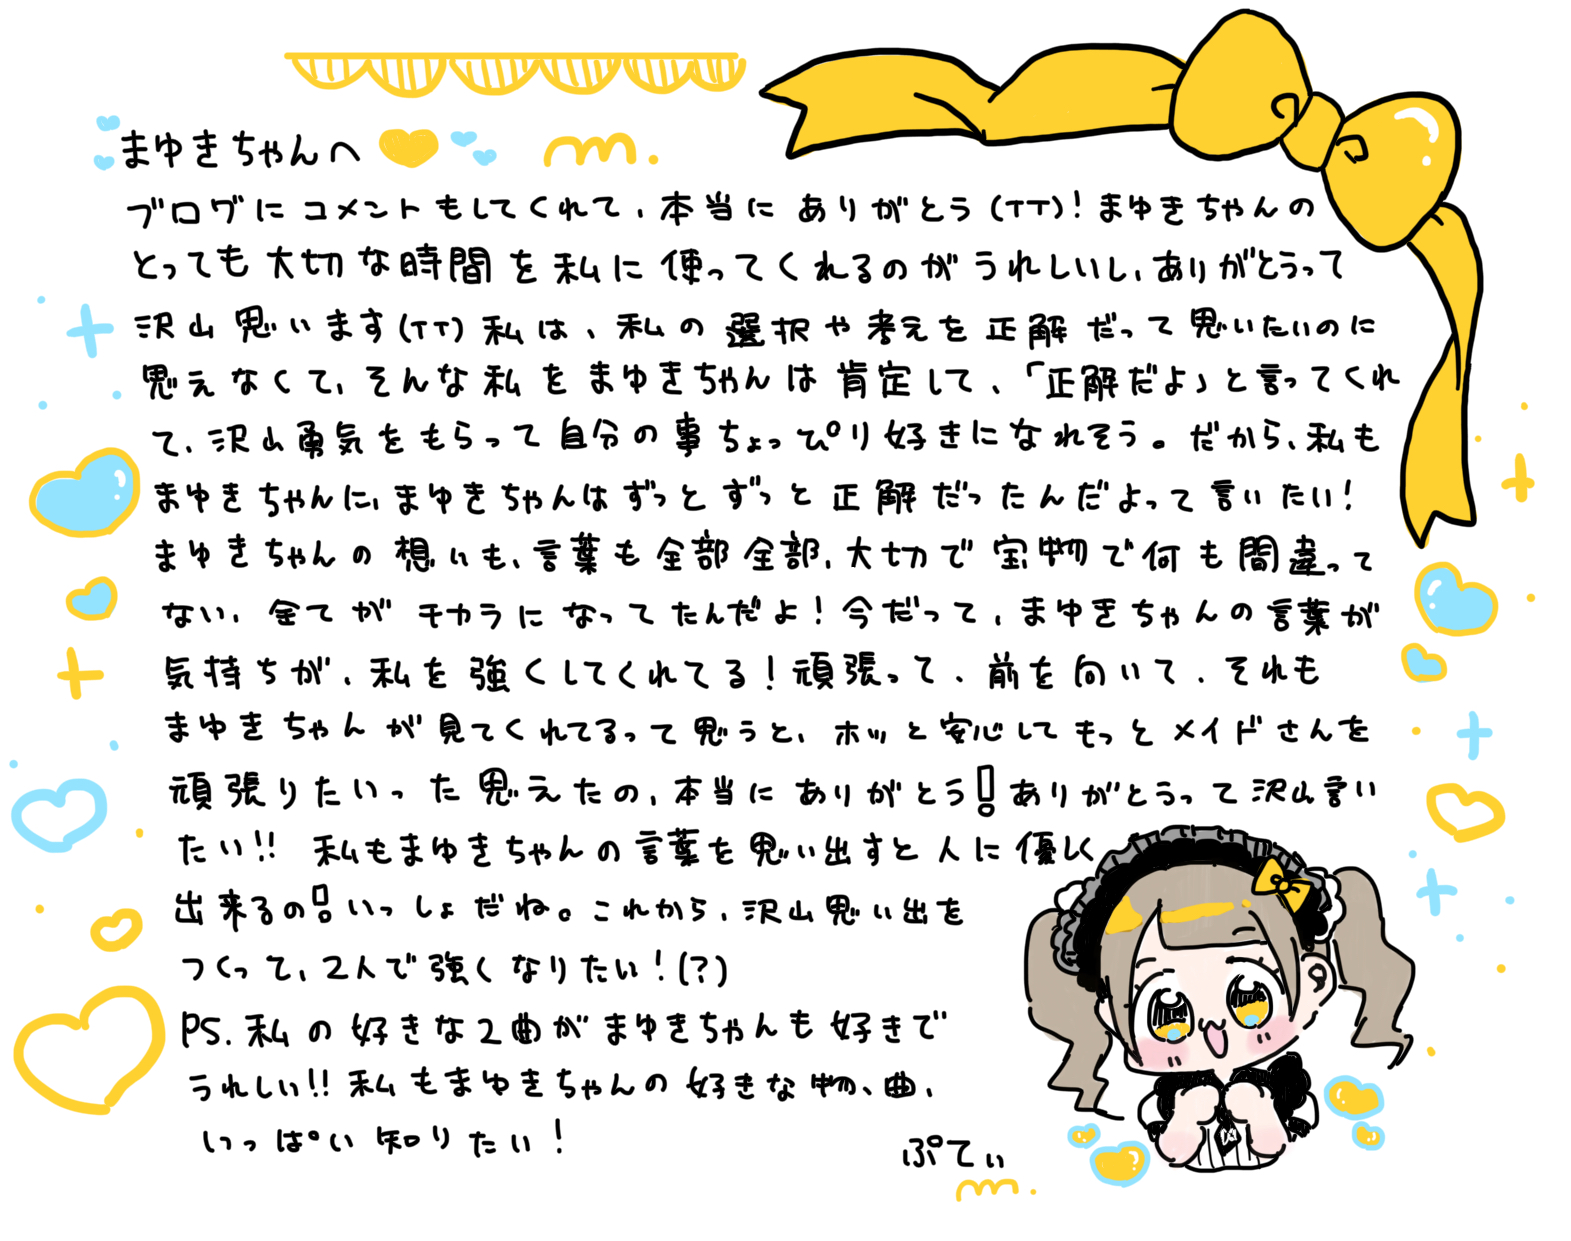 まゆきちゃんへ
ブログにコメントもしてくれて、本当にありがとう(TT)!まゆきちゃんの
とっても大切な時間を私に使ってくれるのがうれしいし、ありがとうって
沢山思います(TT)私は、私の選択や考えを正解だって思いたいのに
思えなくて、そんな私をまゆきちゃんは肯定して、「正解だよ」と言ってくれ
て、沢山勇気をもらって自分の事ちょっぴり好きになれそう。だから、私も
まゆきちゃんに、まゆきちゃんはずっとずっと正解だったんだよって言いたい!
まゆきちゃんの想いも、言葉も全部全部、大切で宝物で何も間違って
ない、全てがチカラになってたんだよ!今だって、まゆきちゃんの言葉が
気持ちが、私を強くしてくれてる!頑張って、前を向いて、それも
まゆきちゃんが見てくれてるって思うと、ホッと安心してもっとメイドさんを
頑張りたいった思えたの、本当にありがとう!ありがとうって沢山言い
たい!!私もまゆきちゃんの言葉を思い出すと人に優しく
出来るの!いっしょだね。これから、沢山思い出を
つくって、2人で強くなりたい!(?)
PS.私の好きな2曲がまゆきちゃんも好きで
うれしい!!私もまゆきちゃんの好きな物、曲、
いっぱい知りたい!
ぷてぃ